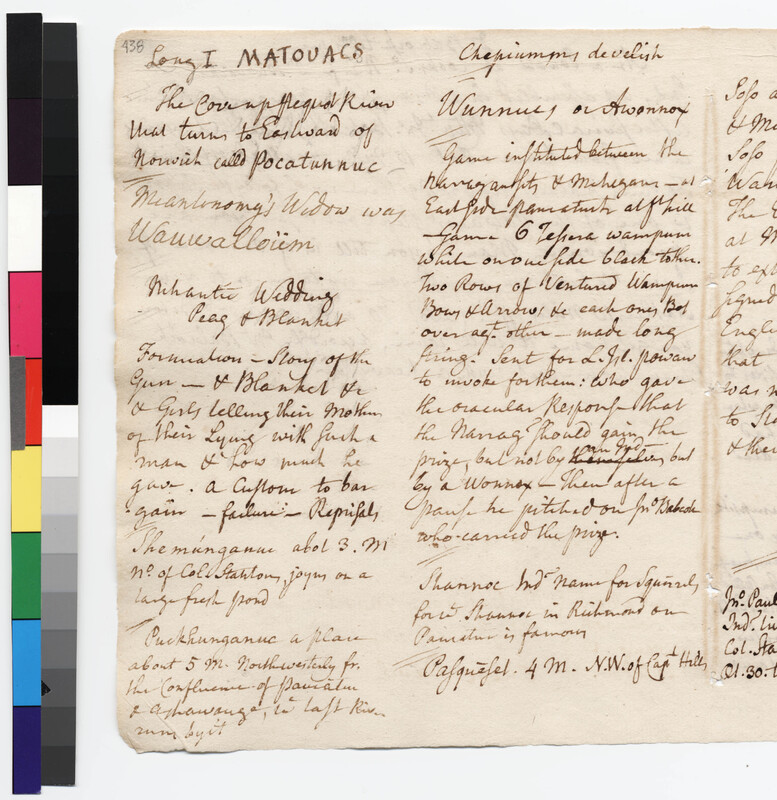 438
Long I MATOUACS
The Cove up Pequot River
that turns to Eastward of
Norwich called Pocatannuc
Meantonomy's Widow was
Wauwalloüm
Nihantic Wedding
Peag & Blanket
Fornication - Story of the
Gun - & Blanket &c
& Girls telling their Mother
of their Lying with such a
man & how much he
gave. a Custom to bar
gain - failure - Reprisals
Shemúnganuc abot 3. M
No. of Col. Stantons, joyns on a
large fresh pond
Puckhunganuc a place
about 5 M. Northwesterly fr.
the Confluence of Paucatuc
& Ashawauge, wc last River
runs by it
Chepiummps develish
Wunnues or Awonnox
Game instituted between the
Narragansetts & Mohegans - at
East side paucatuck at hill
- Game 6 Tessera wampum
white on one side black tother.
Two Rows of Ventured Wampum
Bows & Arrows &c each ones Bet
over agt. other - made long
string. Sent for L. Isl. powaw
to invoke for them: who gave
the oracular Response that
the Narrag should gain the
prize, but not by an Indn but
by a Wonnox - Then after a
pause he pitched on Jno Babcock
who carried the prize.
Shannoc Indn Name for Squirrels
for wc Shannoc in Richmond on
Paucatuc is famous
Pasqueset. 4 M. N.W. of Capt Hills
Soso a
& Mo
Soso
Wan
The E
at M
to ex
signed
Englis
that
was n
to Sto
& their
Jno. Paul
Indn. liv
Col. Sta
Æt. 30. t